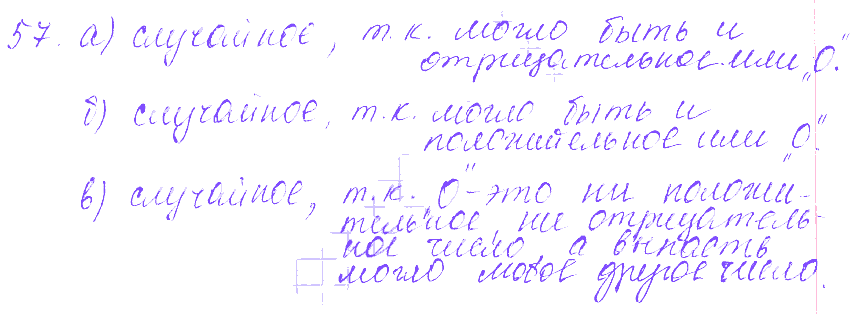 57. а) случайное, т.к. могло быть и
отрицательное или „0".
б) случайное, т.к. могло быть и
положительное или „0".
в) случайное, т.к. „0" - это ни положи-
тельное, ни отрицатель-
ное число, а выпасть
могло любое другое число.